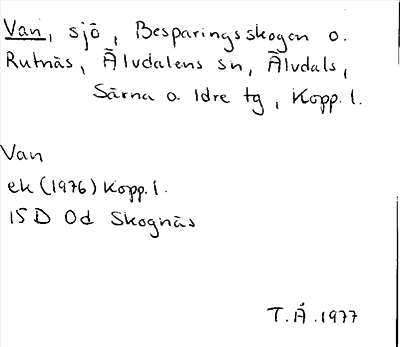 Van, sjö, Besparingsskogen o.
Rutnäs, Älvdalens sn, Älvdals,
Särna o. Idre tg, Kopp.l.
Van
ek (1976) Kopp.l.
15 D 0d Skognäs
T.Å.1977